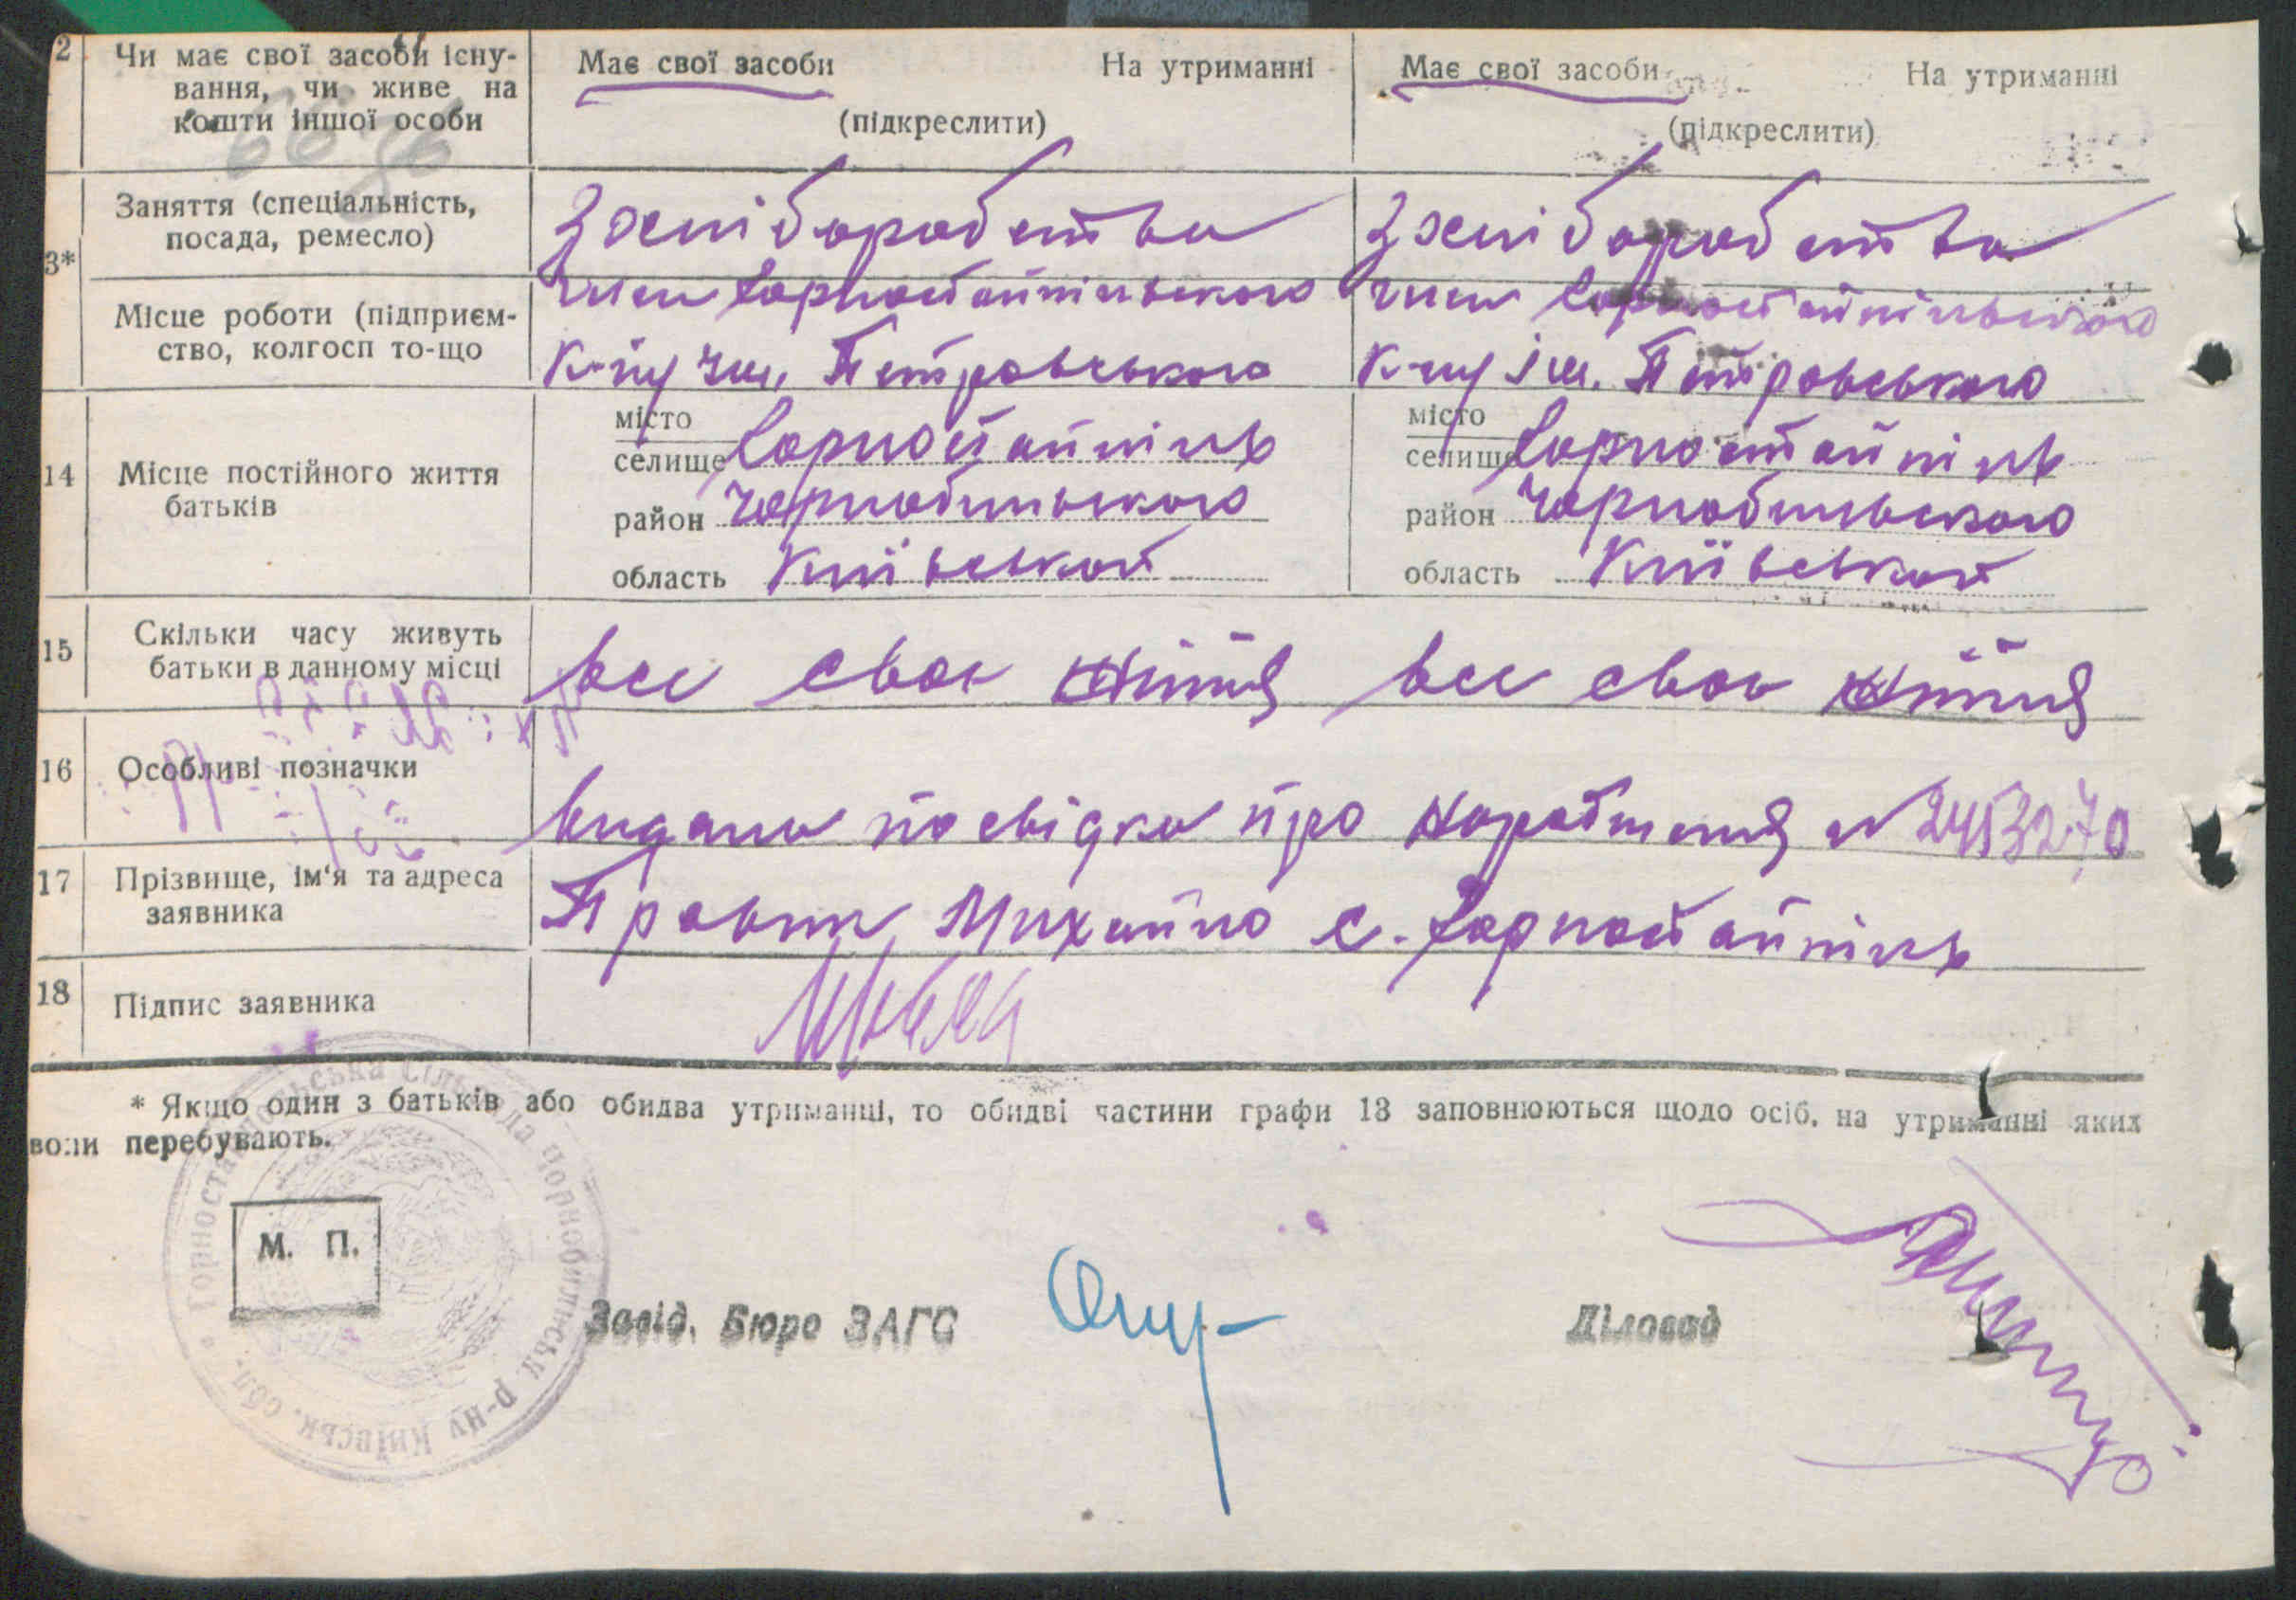 2 Чи має свої засоби існу-
вання, чи живе на
кошти іншої особи
Має свої засоби На утриманні
(підкреслити)
Має свої засоби На утриманні
(підкреслити)
3*
Заняття (спеціальність,
посада, ремесло)
З хліборобства
З хліборобства
Місце роботи (підприєм-
ство, колгосп то-що
член Горностайпільського
к-пу ім. Петровського
член Горностайпільського
к-пу ім. Петровського
14 Місце постійного життя
батьків
місто
селище Горностайпіль
район Чорнобильского
область Київської
місто
селище Горностайпіль
район Чорнобильского
область Київської
15 Скільки часу живуть
батьки в данному місці
все своє життя
все своє життя
16 Особливі позначки
видано посвідку про народження № 2453270
17 Прізвище, ім'я та адреса
заявника
Правик Михайло с. Горностайпіль
18 Підпис заявника
* Якщо один з батьків або обидва утриманці, то обидві частини графи 13 заповнюються щодо осіб, на утриманні яких
вони перебувають.
М. П.
Завід. Бюро ЗАГС
Діловод